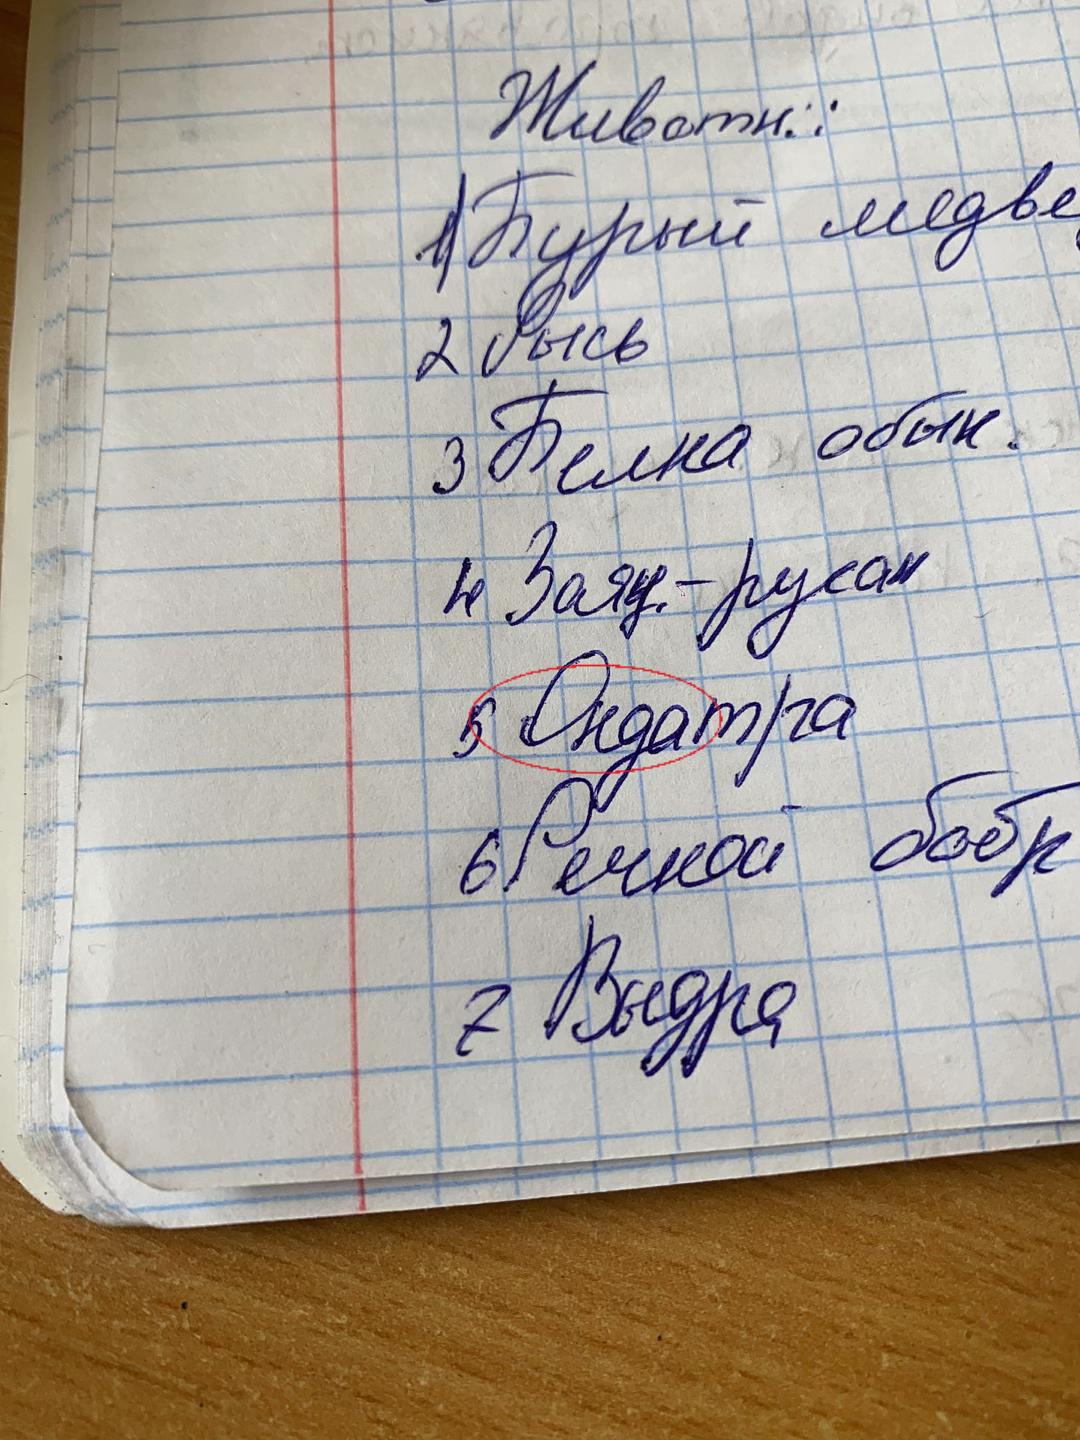 Животн.:
1) Бурый медве
2 Рысь
3 Белка обык.
4 Заяц-русак
5 Ондатра
6 Речной бобр
7 Выдра